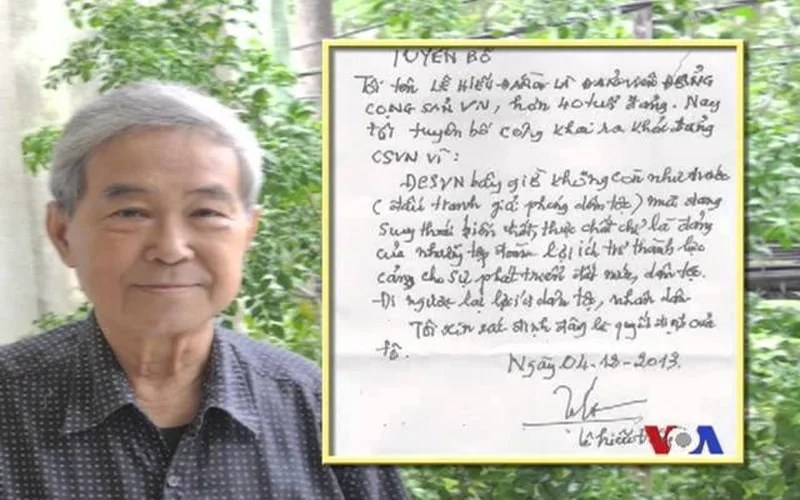 TUYÊN BỐ
Tôi tên LÊ HIẾU ĐẰNG LÀ ĐẢNG VIÊN ĐẢNG
CỘNG SẢN VN, hơn 40 tuổi đảng. Nay
tôi tuyên bố công khai ra khỏi đảng
CSVN vì:
ĐCSVN bây giờ không còn như trước
(đấu tranh giải phóng dân tộc) mà đang
suy thoái biến chất, thực chất chỉ là đảng
của những tập đoàn lợi ích trở thành lực
cảng cho sự phát triển đất nước, dân tộc.
Đi ngược lại lợi ích dân tộc, nhân dân
Tôi xin xác định đây là quyết định của
tôi.
Ngày 04-12-2013.
Lê Hiếu
VOA